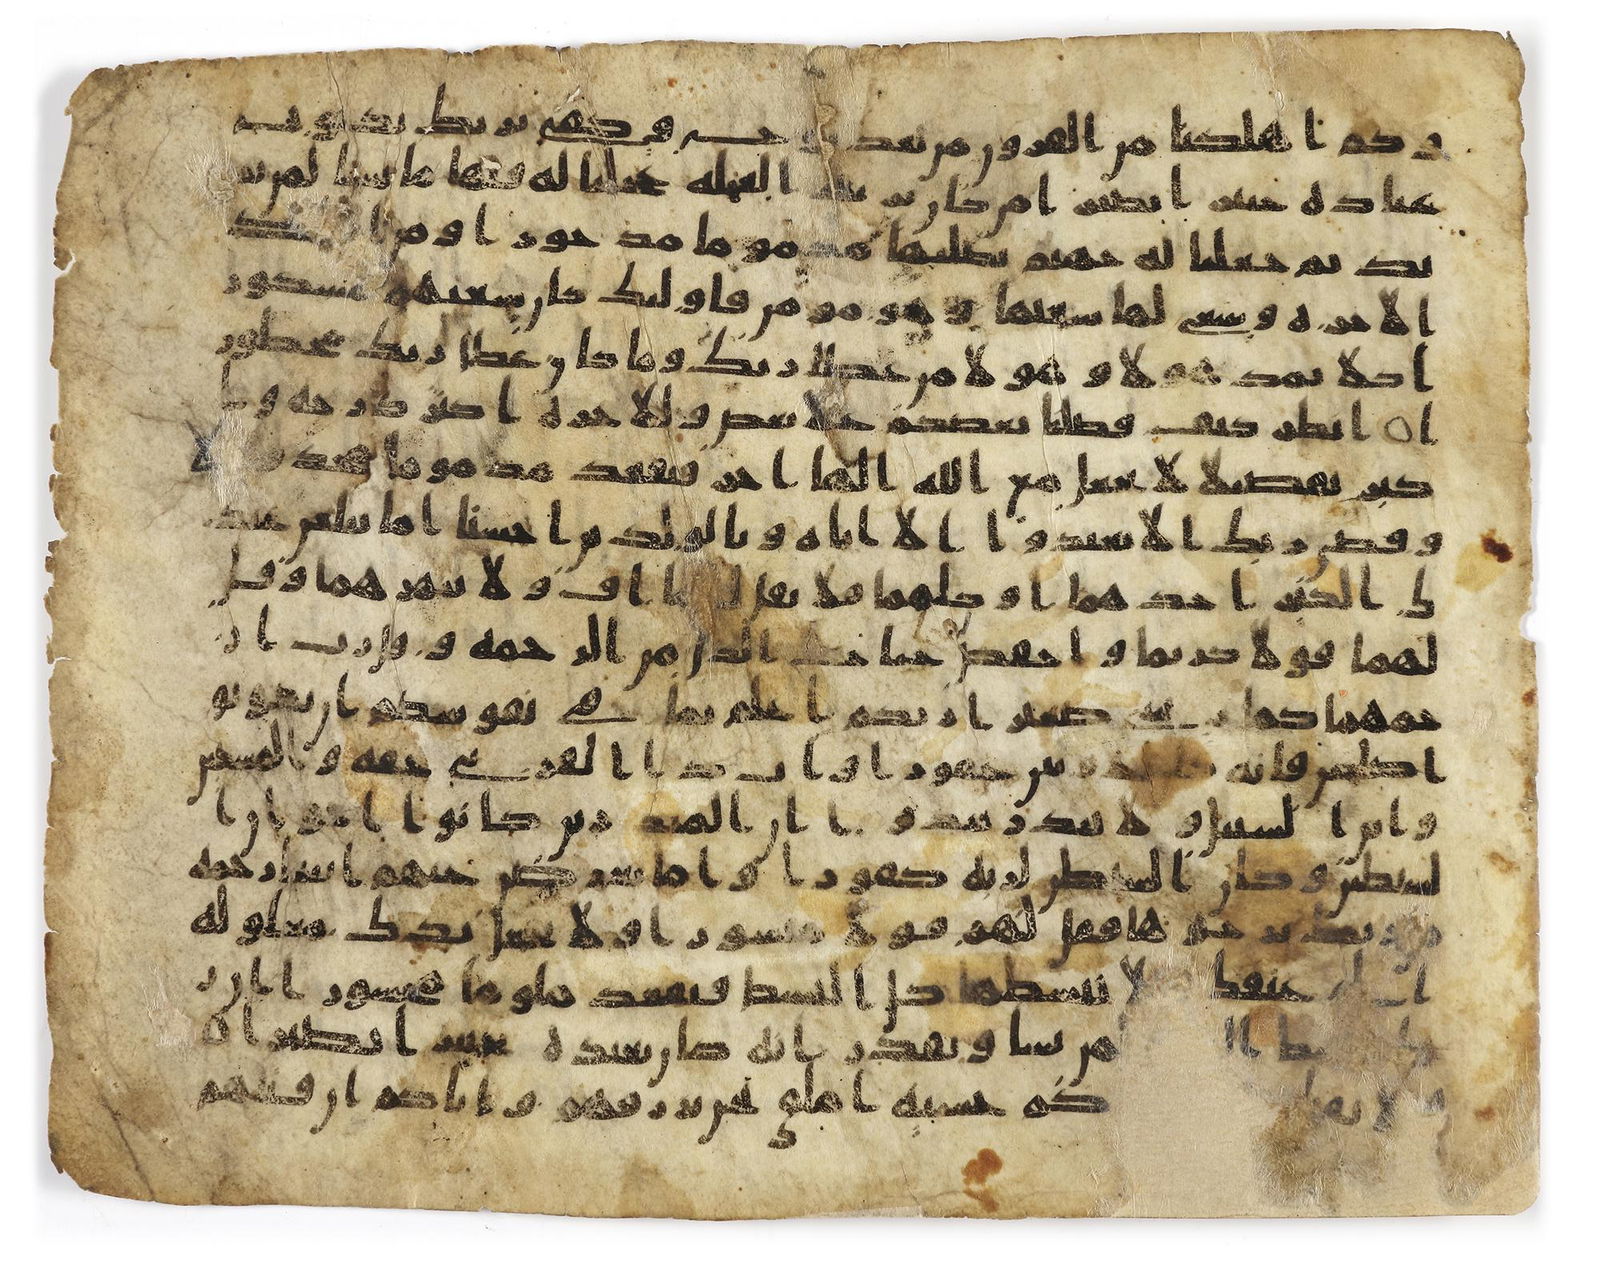 وكم اهلكنا من القرون من بعد نوح وكفى بربك بذنوب
عباده خبيرا بصيرا من كان يريد العجله عجلنا له فيها ما نشا لمن نر
يد ثم جعلنا له جهنم يصليها مذموما مدحورا ومن اراد
الاخره وسعى لها سعيها وهو مومن فاوليك كان سعيهم مشكور
ا كلا نمد هولا وهولا من عطا ربك وما كان عطا ربك محظور
ا انظر كيف فضلنا بعضهم علا بعض وللاخره اكبر درجه وا
كبر تفضيلا لا تجعل مع الله الها اخر فتقعد مذموما مخذولا
وقضى ربك الا تعبدوا الا اياه وبالولدين احسنا اما يبلغن عند
ك الكبر احدهما او كلهما فلا تقل لهما اف ولا تنهرهما وقل
لهما قولا كريما واخفض جناح الذل من الرحمه وقل رب ار
حمهما كما ربيني صغيرا ربكم اعلم بما في نفوسكم ان تكونو
ا صلحين فانه كان غفورا وات ذا القربى حقه والمسكين
وابن السبيل ولا تبذر تبذيرا ان المبذرين كانوا اخون ا
لشيطين وكان الشيطن لربه كفورا واما تعرضن عنهم ابتغا رحمه
من ربك ترجوها فقل لهم قولا ميسورا ولا تجعل يدك مغلوله
الى عنقك ولا تبسطها كل البسط فتقعد ملوما محسورا ان ر
بك لمن يشا ويقدر انه كان بعبده خبيرا بصيرا
ولا كم خشيه املق نحن نرزقهم واياكم ان قتلهم